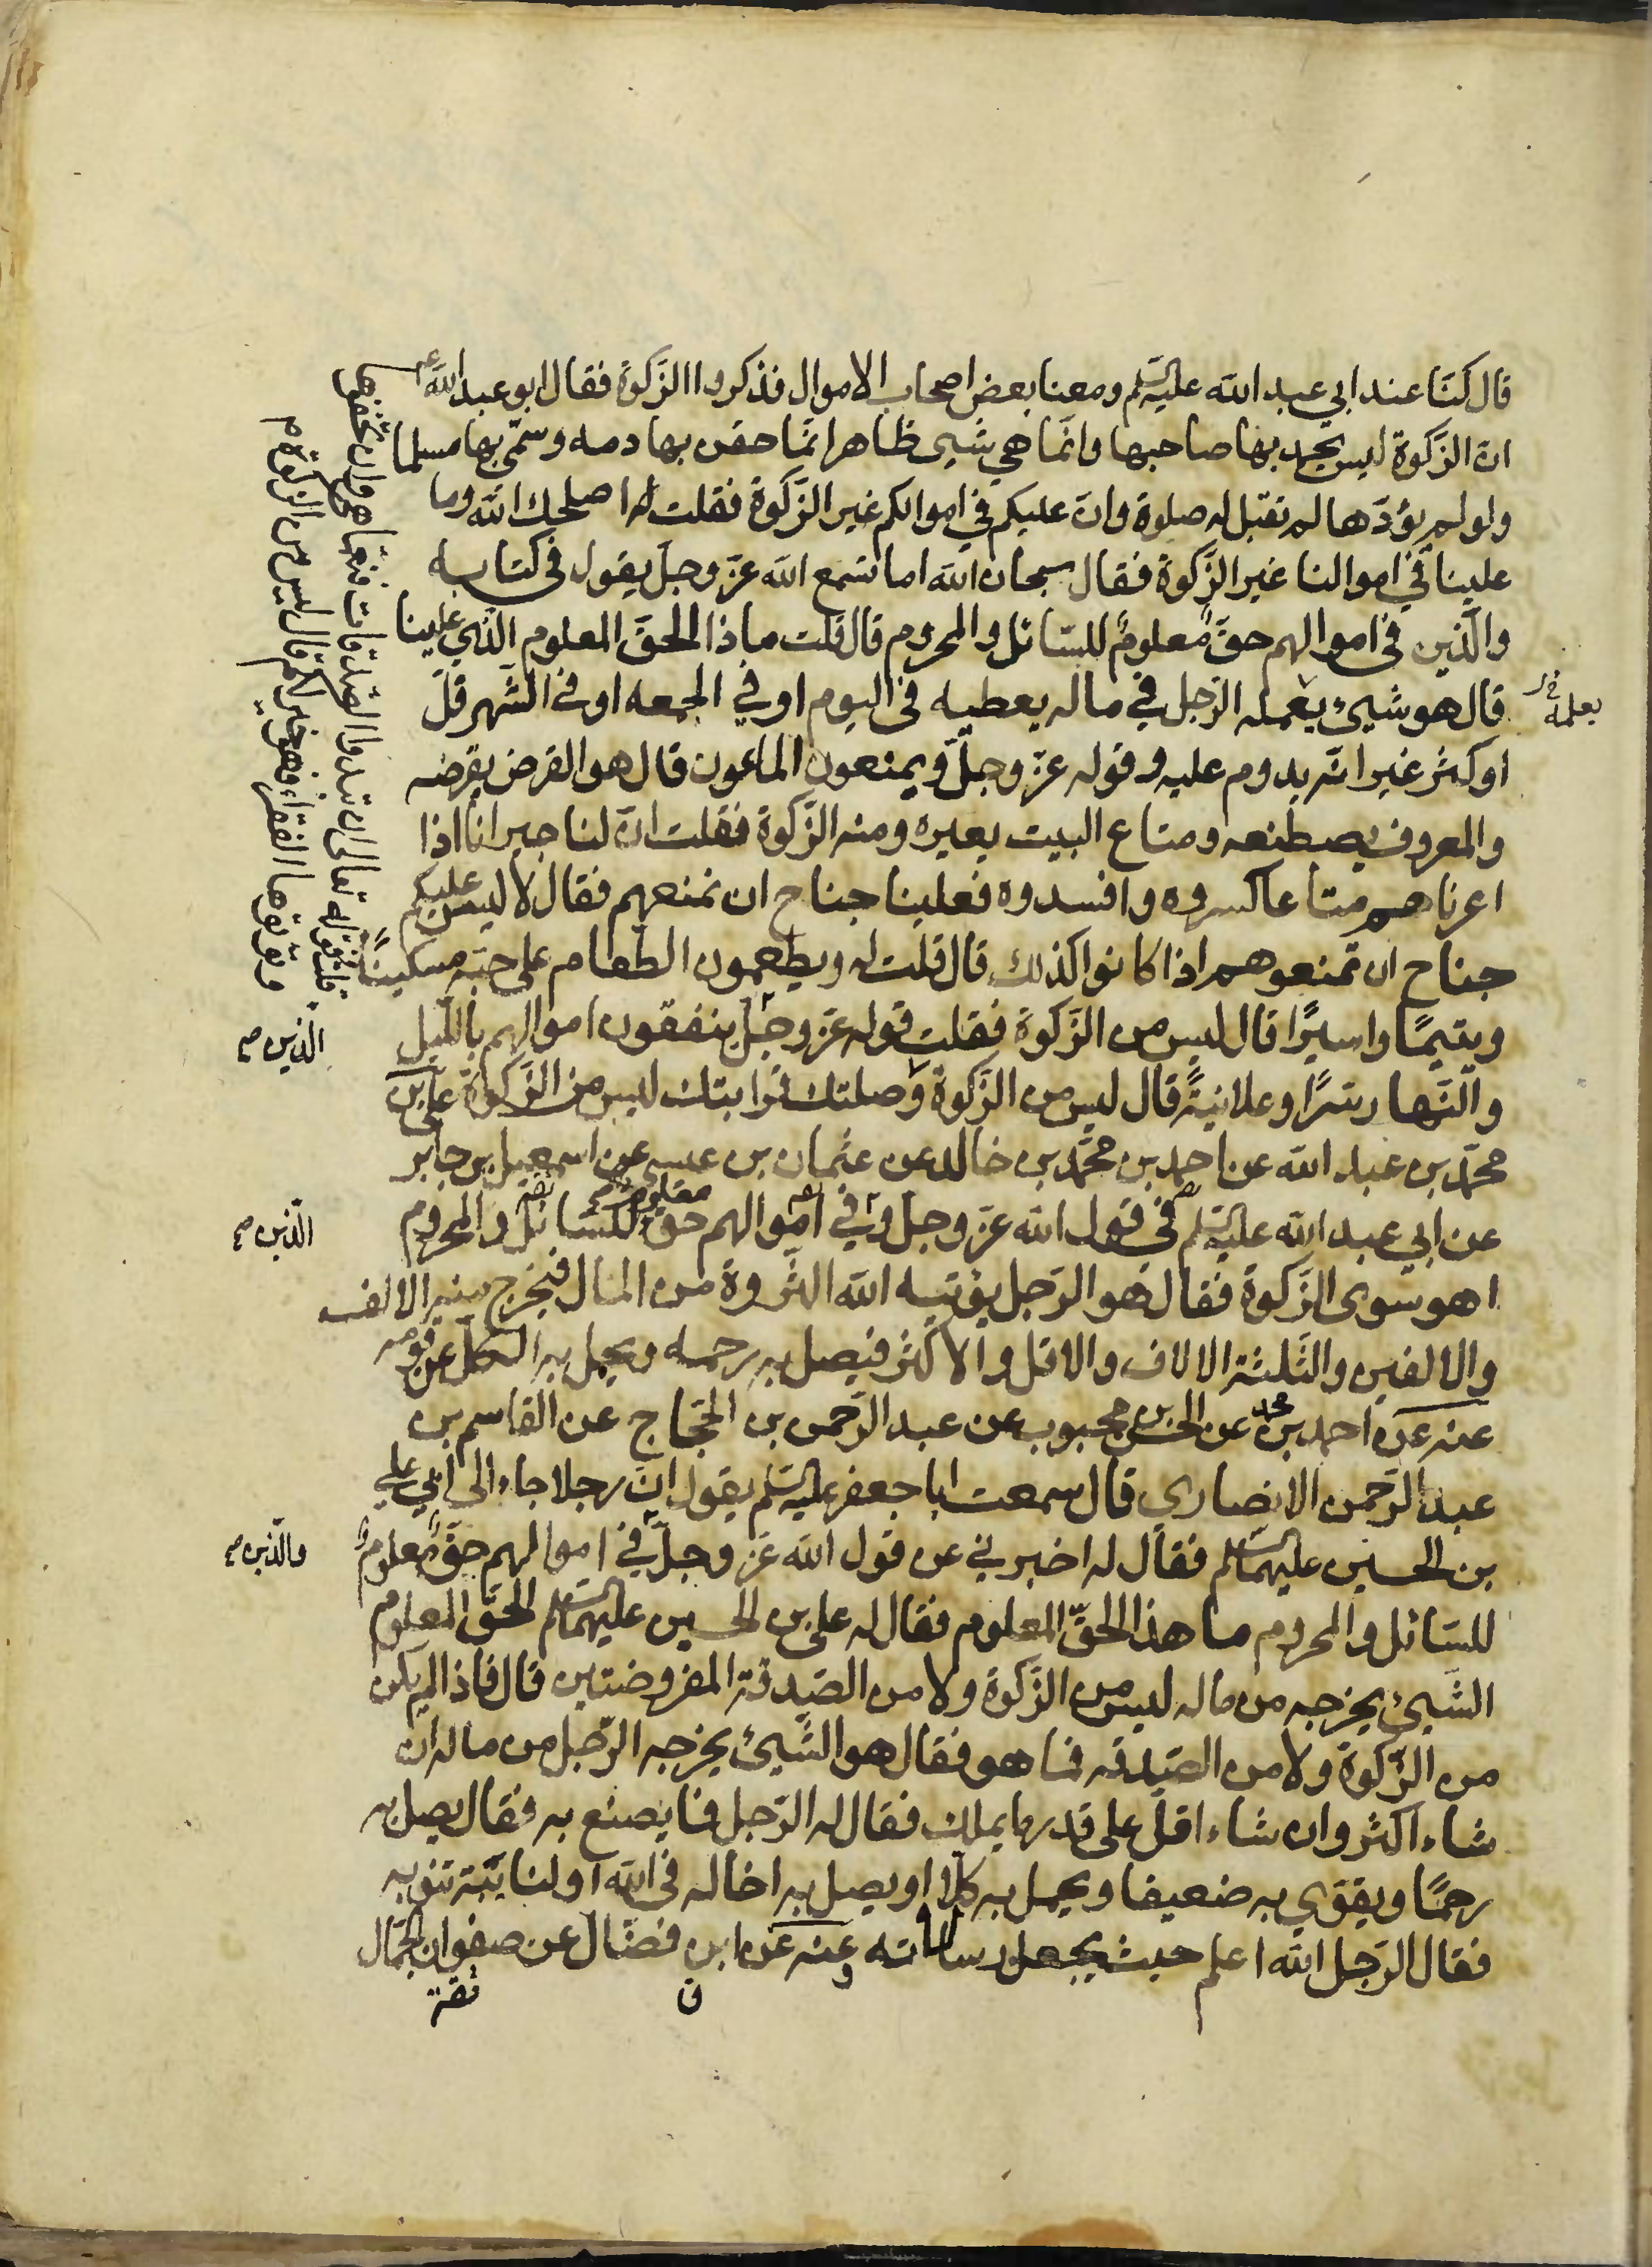 قال كنّا عند ابي عبد الله عليه السلم ومعنا بعض اصحاب الاموال فذكروا الزّكوة فقال ابو عبد الله ع
انّ الزّكوة ليس يحمد بها صاحبها وانّما هي شيئ ظاهر انّما حقن بها دمه وسمّي بها مسلما
ولو لم يؤدّها لم تقبل له صلوة وانّ عليكم في اموالكم غير الزّكوة فقلت له اصلحك الله وما
علينا في اموالنا غير الزّكوة فقال سبحان الله اما تسمع الله عزّ وجلّ يقول في كتابه
والّذين في اموالهم حقّ معلوم للسّائل والمحروم قال قلت ماذا الحقّ المعلوم الّذي علينا
قال هو شيئ يعمله الرّجل في ماله يعطيه في اليوم او في الجمعه او في الشّهر قلّ
يعلمه
او كثر غير انّه يدوم عليه وقوله عزّ وجلّ ويمنعون الماعون قال هو القرض يقرضه
والمعروف يصطنعه ومتاع البيت يعيره ومنه الزّكوة فقلت انّ لنا جيرانا اذا
اعرناهم متاعا كسروه وافسدوه فعلينا جناح ان نمنعهم فقال لا ليس عليكم
جناح ان تمنعوهم اذا كانوا كذلك قال قلت له ويطعمون الطعام على حبّه مسكيناً
ويتيمًا واسيرًا قال ليس من الزّكوة فقلت قوله عزّ وجلّ ينفقون اموالهم باللّيل
الّذين صح
والنّهار سرًّا وعلانيةً قال ليس من الزّكوة وصلتك قرابتك ليس من الزّكوة علي بن
قلت فقوله تعالى ان تبدوا الصّدقات فنعمّا هي وان تخفوها
وتؤتوها الفقراء فهو خير لكم قال ليس من الزكوة صح
محمّد بن عبد الله عن احمد بن محمّد بن خالد عن عثمان بن عيسى عن اسمعيل بن جابر
عن ابي عبد الله عليه السلم في قول الله عزّ وجلّ في اموالهم حقّ معلوم للسّائل والمحروم
الّذين صح
اهو سوى الزّكوة فقال هو الرّجل يؤتيه الله الثّروة من المال فيخرج منه الالف
والالفين والثّلثة الالاف والاقل والاكثر فيصل به رحمه ويحمل به الكلّ عن قومه
عنه عن احمد بن محمد عن الحسن بن محبوب عن عبد الرّحمن بن الحجّاج عن القاسم بن
عبد الرّحمن الانصاري قال سمعت ابا جعفر عليه السلم يقول انّ رجلا جاء الى ابي علي
بن الحسين عليهما السلم فقال له اخبرني عن قول الله عزّ وجلّ في اموالهم حقّ معلوم
والّذين صح
للسّائل والمحروم ما هذا الحقّ المعلوم فقال له علي بن الحسين عليهما السلم الحقّ المعلوم
الشّيئ يخرجه من ماله ليس من الزّكوة ولا من الصّدقة المفروضتين قال فاذا لم يكن
من الزّكوة ولا من الصّدقه فما هو فقال هو الشّيئ يخرجه الرّجل من ماله ان
شاء اكثر وان شاء اقلّ على قدر ما يملك فقال له الرّجل فما يصنع به فقال يصل به
رحمًا ويقوّي به ضعيفا ويحمل به كلّا او يصل به اخا له في الله او لنائبة تنوبه
فقال الرّجل الله اعلم حيث يجعل رسالاته وعنه عن ابن فضّال عن صفوان الجمّال
ن ثقة